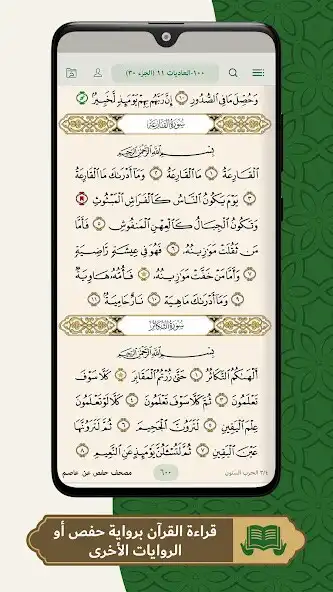 ١٠٠-العاديات ١١ (الجزء ٣٠)
وَحُصِّلَ مَا فِي ٱلصُّدُورِ ١٠ إِنَّ رَبَّهُم بِهِمْ يَوْمَئِذٍ لَّخَبِيرٌۢ
سُورَةُ القَارِعَةِ
بِسْمِ ٱللَّهِ ٱلرَّحْمَٰنِ ٱلرَّحِيمِ
ٱلْقَارِعَةُ ١ مَا ٱلْقَارِعَةُ ٢ وَمَآ أَدْرَىٰكَ مَا ٱلْقَارِعَةُ
٣ يَوْمَ يَكُونُ ٱلنَّاسُ كَٱلْفَرَاشِ ٱلْمَبْثُوثِ
وَتَكُونُ ٱلْجِبَالُ كَٱلْعِهْنِ ٱلْمَنفُوشِ ٥ فَأَمَّا
مَن ثَقُلَتْ مَوَٰزِينُهُۥ ٦ فَهُوَ فِي عِيشَةٍ رَّاضِيَةٍ
٧ وَأَمَّا مَنْ خَفَّتْ مَوَٰزِينُهُۥ ٨ فَأُمُّهُۥ هَاوِيَةٌ
٩ وَمَآ أَدْرَىٰكَ مَا هِيَهْ ١٠ نَارٌ حَامِيَةٌۢ ١١
سُورَةُ التَّكَاثُرِ
بِسْمِ ٱللَّهِ ٱلرَّحْمَٰنِ ٱلرَّحِيمِ
أَلْهَىٰكُمُ ٱلتَّكَاثُرُ ١ حَتَّىٰ زُرْتُمُ ٱلْمَقَابِرَ ٢ كَلَّا سَوْفَ
تَعْلَمُونَ ٣ ثُمَّ كَلَّا سَوْفَ تَعْلَمُونَ ٤ كَلَّا لَوْ تَعْلَمُونَ
عِلْمَ ٱلْيَقِينِ ٥ لَتَرَوُنَّ ٱلْجَحِيمَ ٦ ثُمَّ لَتَرَوُنَّهَا
عَيْنَ ٱلْيَقِينِ ٧ ثُمَّ لَتُسْـَٔلُنَّ يَوْمَئِذٍ عَنِ ٱلنَّعِيمِ ٨
٢/٤ الحزب الستون ٦٠٠ مصحف حفص عن عاصم
قراءة القرآن برواية حفص أو
الروايات الأخرى